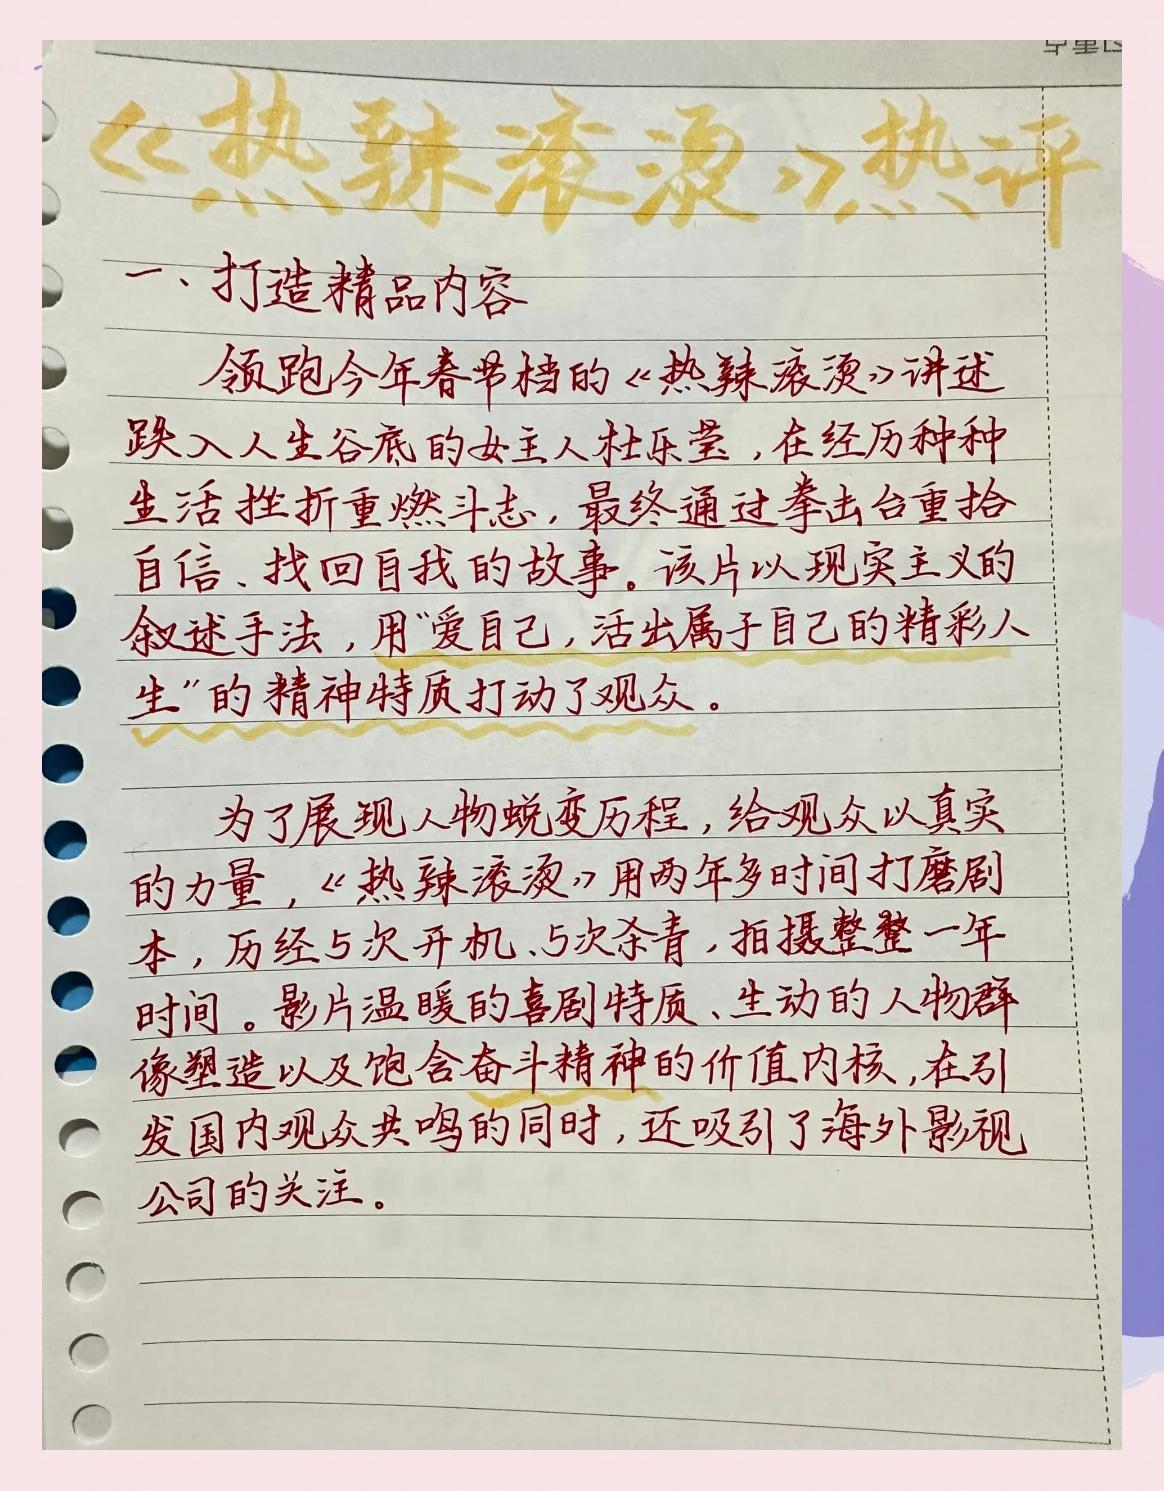 《热辣滚烫》热评
一、打造精品内容
领跑今年春节档的《热辣滚烫》讲述
跌入人生谷底的女主人杜乐莹，在经历种种
生活挫折重燃斗志，最终通过拳击台重拾
自信、找回自我的故事。该片以现实主义的
叙述手法，用“爱自己，活出属于自己的精彩人
生”的精神特质打动了观众。
为了展现人物蜕变历程，给观众以真实
的力量，《热辣滚烫》用两年多时间打磨剧
本，历经5次开机、5次杀青，拍摄整整一年
时间。影片温暖的喜剧特质、生动的人物群
像塑造以及饱含奋斗精神的价值内核，在引
发国内观众共鸣的同时，还吸引了海外影视
公司的关注。